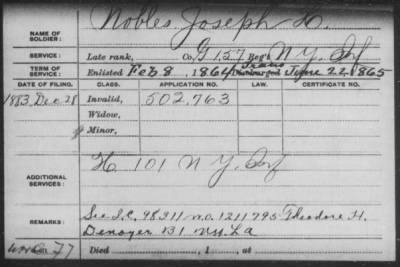 NAME OF SOLDIER: Nobles, Joseph H.
SERVICE: Late rank, Co. G 157 Reg't N Y. Inf
TERM OF SERVICE: Enlisted Feb 8, 1864 Trans Discharged June 22 1865
DATE OF FILING. CLASS. APPLICATION NO. LAW. CERTIFICATE NO.
1883, Dec 28 Invalid, 502,763
Widow,
Minor,
ADDITIONAL SERVICES: H 101 N Y. Inf
REMARKS: See I.C. 98311 no. 1211795 Theodore H.
Denoyer 131 N.Y. I.A
77 Died , 1 , at